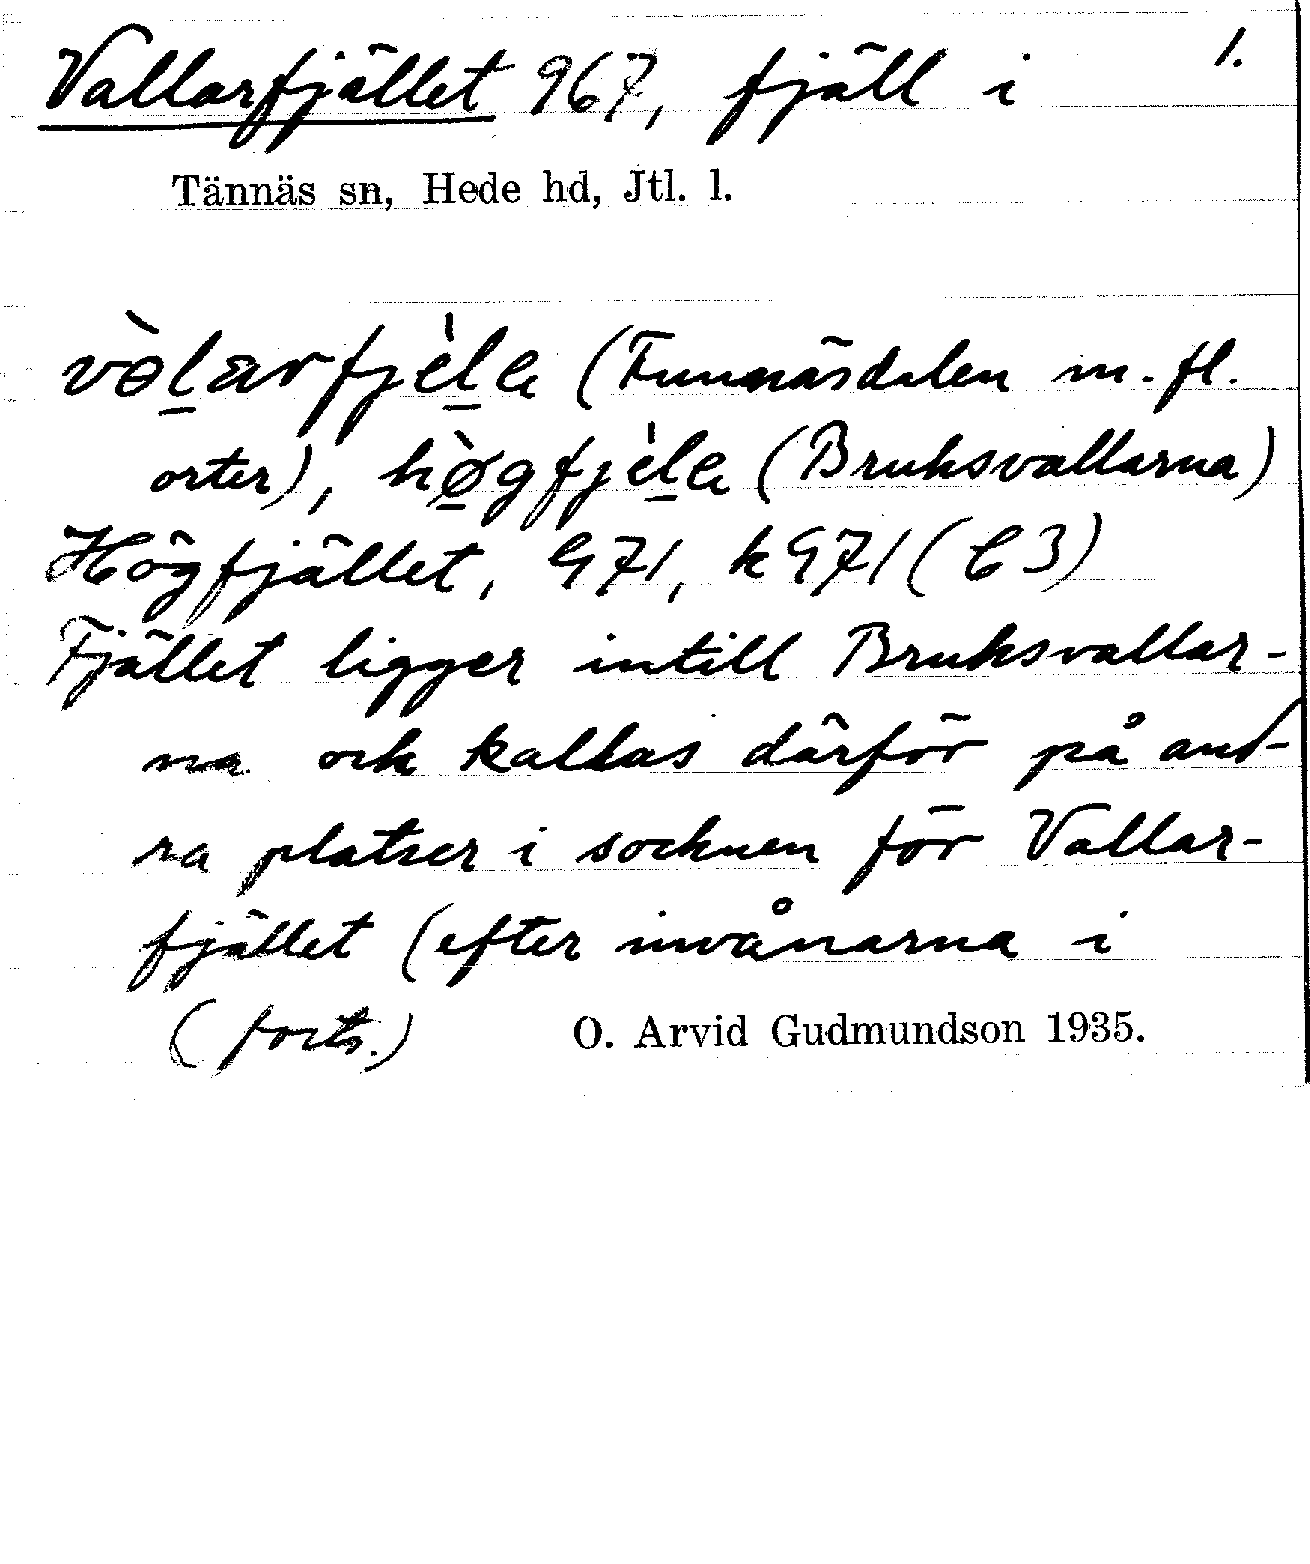 Vallarfjället 967, fjäll i 1.
Tännäs sn, Hede hd, Jtl. l.
vòlarfjèle (Funnäsdalen m. fl.
orter), hø̀gfjèle (Bruksvallarna)
Högfjället, G71, k971 (C3)
Fjället ligger intill Bruksvallar-
na och kallas därför på and-
ra platser i socknen för Vallar-
fjället (efter invånarna i
(forts.) O. Arvid Gudmundson 1935.